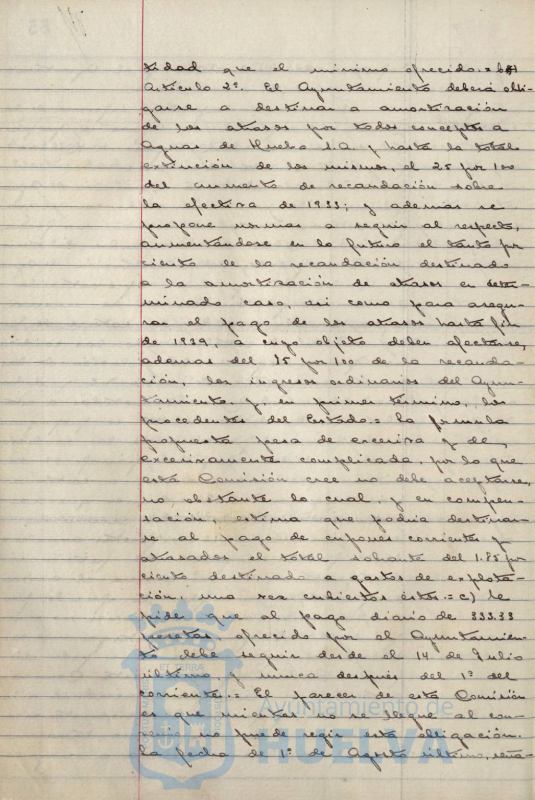 tidad que el minimo ofrecido.= b)
Artículo 2º. El Ayuntamiento deberá obli-
garse a destinar a amortización
de los atrasos por todos conceptos a
Aguas de Huelva S.A. y hasta la total
extinción de los mismos, el 25 por 100
del aumento de recaudación sobre
la efectiva de 1933; y ademas se
propone normas a seguir al respecto,
aumentándose en lo futuro el tanto por
ciento de la recaudación destinado
a la amortización de atrasos en deter-
minado caso, asi como para asegu-
rar el pago de los atrasos hasta fin
de 1939, a cuyo objeto deben afectarse,
ademas del 15 por 100 de la recauda-
ción, los ingresos ordinarios del Ayun-
tamiento, y, en primer termino, los
procedentes del Estado.= La formula
propuesta pesa de excesiva y de
excesivamente complicada, por lo que
esta Comisión cree no debe aceptarse,
no obstante lo cual, y en compen-
sación, estima que podria destinar-
se al pago de cupones corrientes y
atrasados el total sobrante del 1.85 por
ciento destinado a gastos de explota-
ción, una vez cubiertos éstos.= c) Se
pide que el pago diario de 333.33
pesetas ofrecido por el Ayuntamien-
to debe seguir desde el 14 de Julio
ultimo y nunca después del 1º del
corriente.= El parecer de esta Comisión
es que mientras no se llegue al con-
venio no puede regir esta obligación.
La fecha de 1º de Agosto último, seña-
Ayuntamiento de
HUELVA